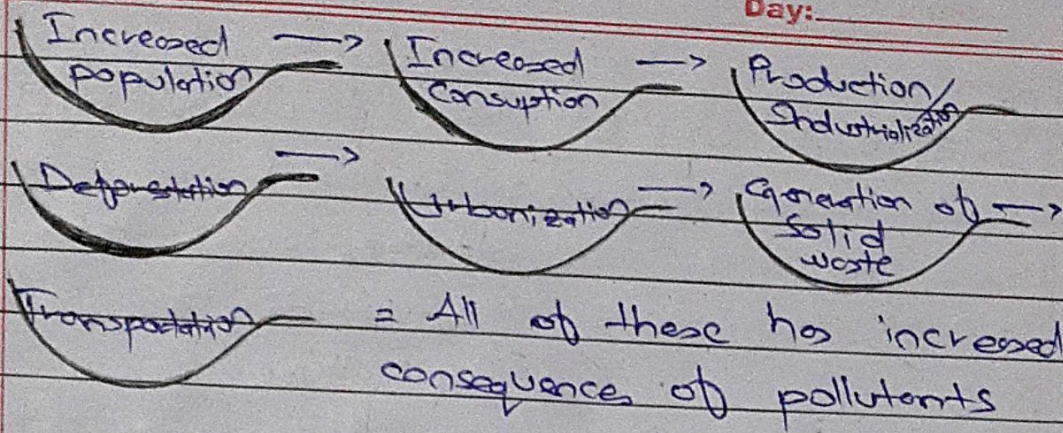 Day:
Increased → Increased → Production/
population Consuption Industrialization
Deforestation → Urbanization → Generation of →
Solid
waste
Transpotation = All of these has increased
consequence of pollutants